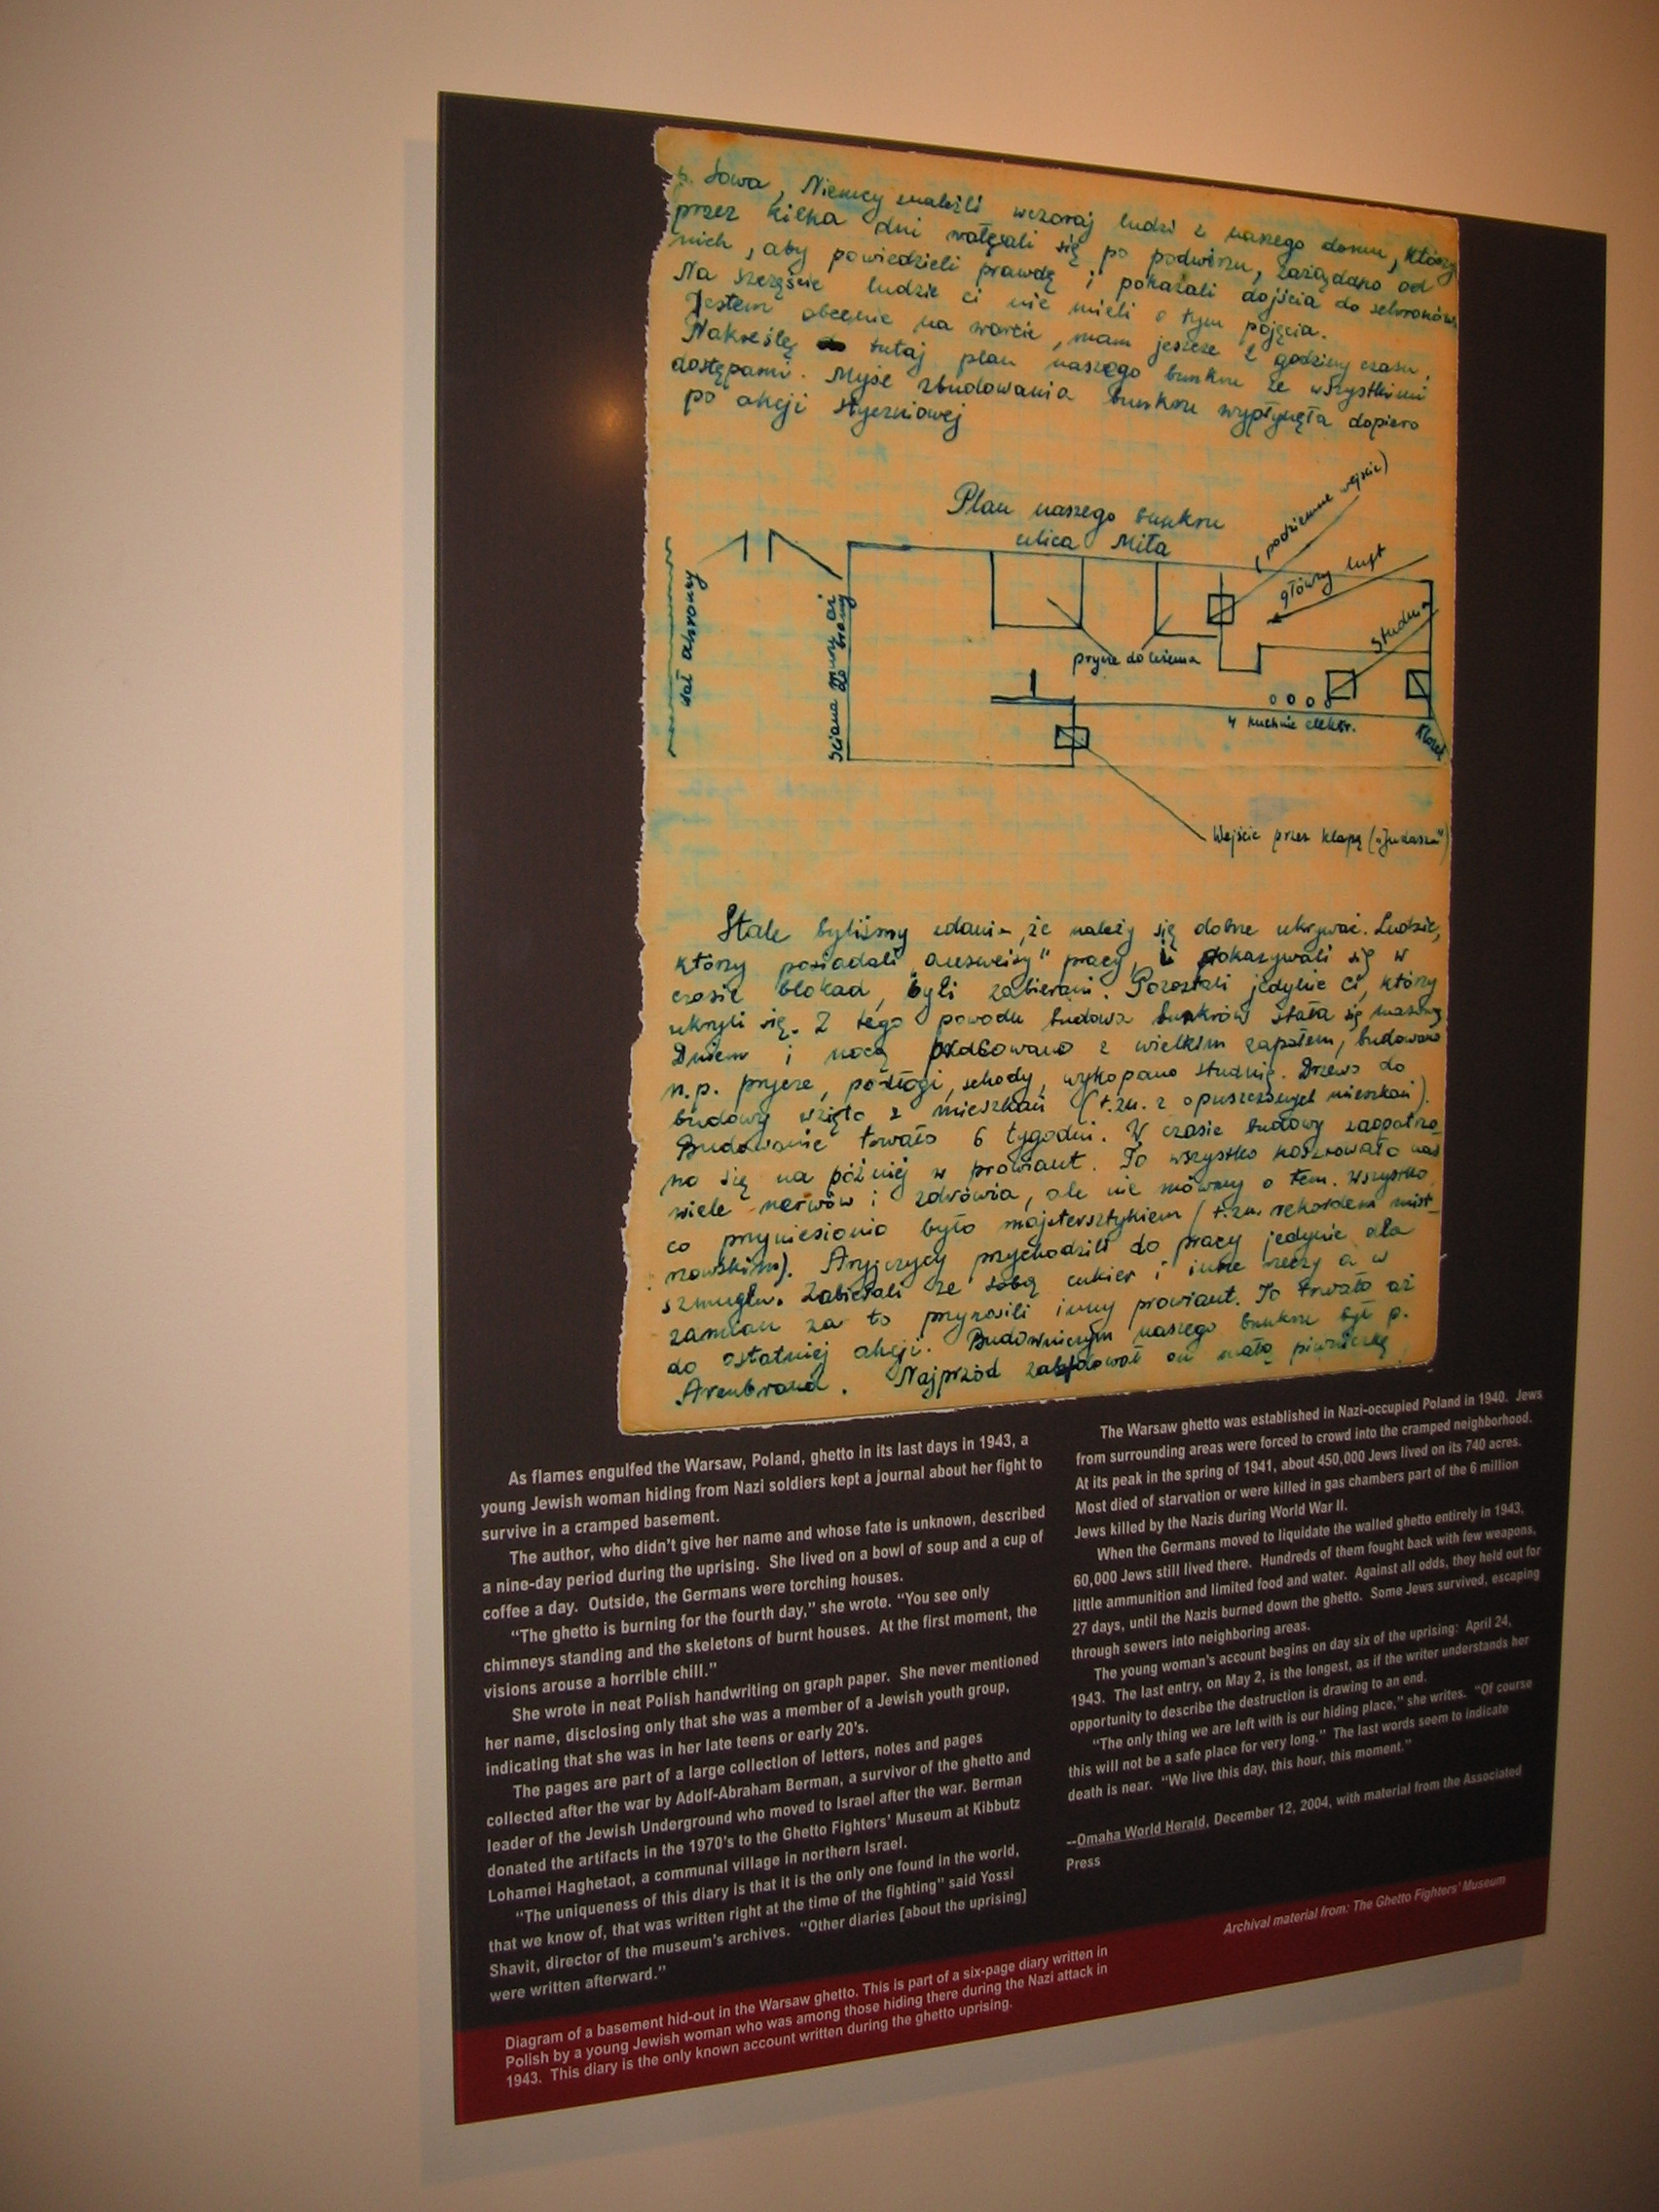 Sowa, Niemcy znaleźli wczoraj ludzi z naszego domu, którzy
przez kilka dni wałęsali się po podwórzu, zażądano od
nich, aby powiedzieli prawdę i pokazali dojścia do schronów.
Na szczęście ludzie ci nie mieli o tym pojęcia.
Jestem obecnie na warcie, mam jeszcze 2 godziny czasu.
Nakreślę tutaj plan naszego bunkru ze wszystkimi
dostępami. Myśl zbudowania bunkru wypłynęła dopiero
po akcji styczniowej
Plan naszego bunkru
ulica Miła
(podziemne wejście)
główny luft
studnia
prycze do leżenia
4 kuchnie elektr.
klozet
ściana
Wejście przez klapę („Judasza")
Stale byliśmy zdania, że należy się dobrze ukrywać. Ludzie,
którzy posiadali „ausweisy" pracy, i pokazywali się w
czasie blokad, byli zabierani. Pozostali jedynie ci, którzy
ukryli się. Z tego powodu budowa bunkrów stała się masową.
Dniem i nocą pracowano z wielkim zapałem, budowano
n.p. prycze, podłogi, schody, wykopano studnię. Drzewo do
budowy wzięto z mieszkań (t.zn. z opuszczonych mieszkań).
Budowanie trwało 6 tygodni. W czasie budowy zaopatrzo-
no się na później w prowiant. To wszystko kosztowało nas
wiele nerwów i zdrowia, ale nie mówmy o tem. Wszystko
co przyniesiono było majstersztykiem (t.zn. rekordem mist-
rzowskim). Aryjczycy przychodzili do pracy jedynie dla
szmuglu. Zabierali ze sobą cukier i inne rzeczy a w
zamian za to przynosili inny prowiant. To trwało aż
do ostatniej akcji. Budowniczym naszego bunkru był p.
Arenbrand. Najprzód zabudował on małą piwniczkę
As flames engulfed the Warsaw, Poland, ghetto in its last days in 1943, a
young Jewish woman hiding from Nazi soldiers kept a journal about her fight to
survive in a cramped basement.
The author, who didn't give her name and whose fate is unknown, described
a nine-day period during the uprising. She lived on a bowl of soup and a cup of
coffee a day. Outside, the Germans were torching houses.
"The ghetto is burning for the fourth day," she wrote. "You see only
chimneys standing and the skeletons of burnt houses. At the first moment, the
visions arouse a horrible chill."
She wrote in neat Polish handwriting on graph paper. She never mentioned
her name, disclosing only that she was a member of a Jewish youth group,
indicating that she was in her late teens or early 20's.
The pages are part of a large collection of letters, notes and pages
collected after the war by Adolf-Abraham Berman, a survivor of the ghetto and
leader of the Jewish Underground who moved to Israel after the war. Berman
donated the artifacts in the 1970's to the Ghetto Fighters' Museum at Kibbutz
Lohamei Haghetaot, a communal village in northern Israel.
"The uniqueness of this diary is that it is the only one found in the world,
that we know of, that was written right at the time of the fighting" said Yossi
Shavit, director of the museum's archives. "Other diaries [about the uprising]
were written afterward."
The Warsaw ghetto was established in Nazi-occupied Poland in 1940. Jews
from surrounding areas were forced to crowd into the cramped neighborhood.
At its peak in the spring of 1941, about 450,000 Jews lived on its 740 acres.
Most died of starvation or were killed in gas chambers part of the 6 million
Jews killed by the Nazis during World War II.
When the Germans moved to liquidate the walled ghetto entirely in 1943,
60,000 Jews still lived there. Hundreds of them fought back with few weapons,
little ammunition and limited food and water. Against all odds, they held out for
27 days, until the Nazis burned down the ghetto. Some Jews survived, escaping
through sewers into neighboring areas.
The young woman's account begins on day six of the uprising: April 24,
1943. The last entry, on May 2, is the longest, as if the writer understands her
opportunity to describe the destruction is drawing to an end.
"The only thing we are left with is our hiding place," she writes. "Of course
this will not be a safe place for very long." The last words seem to indicate
death is near. "We live this day, this hour, this moment."
--Omaha World Herald, December 12, 2004, with material from the Associated
Press
Archival material from: The Ghetto Fighters' Museum
Diagram of a basement hid-out in the Warsaw ghetto. This is part of a six-page diary written in
Polish by a young Jewish woman who was among those hiding there during the Nazi attack in
1943. This diary is the only known account written during the ghetto uprising.